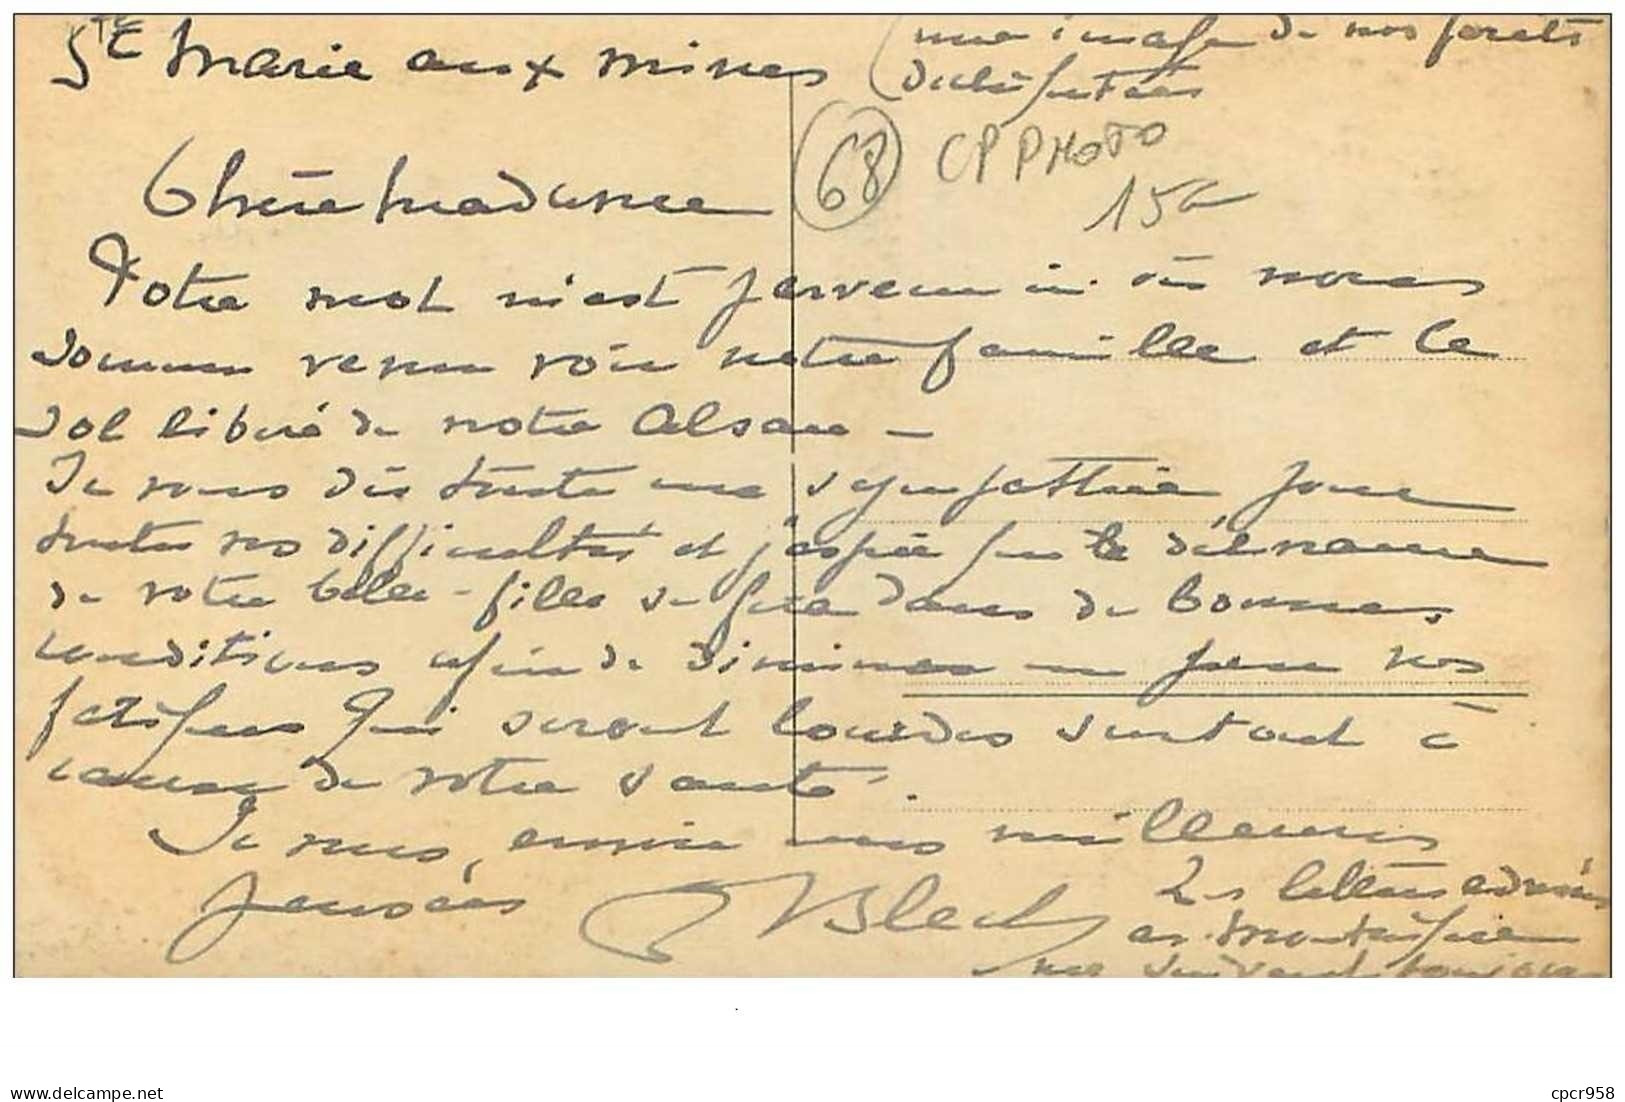 Ste Marie aux mines
une image de nos forêts
déchiquetées
68 CP PHOTO
15
Chère Madame
Votre mot m'est parvenu ici où nous
sommes venus voir notre famille et le
sol libéré de notre Alsace —
Je vous dis toute ma sympathie pour
toutes vos difficultés et j'espère que le déménagement
de votre belle-fille se fera dans de bonnes
conditions afin de diminuer un peu vos
fatigues qui seront lourdes surtout à
cause de votre santé.
Je vous envoie mes meilleures
pensées Blech
Les lettres adressées
en
me suivent toujours
delcampe.net
cpcr958